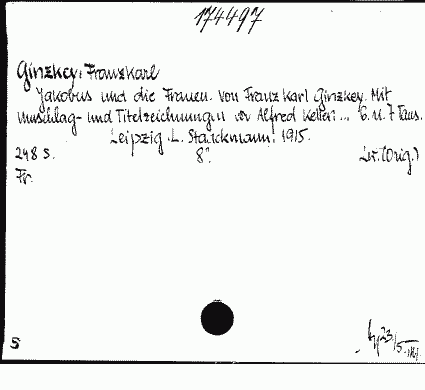 174497
Ginzkey, Franz Karl
Jakobus und die Frauen. Von Franz Karl Ginzkey. Mit
Umschlag- und Titelzeichnungen von Alfred Keller... 6. u. 7 Taus.
Leipzig. L. Staackmann. 1915.
248 S. 8°. Lw. (Orig.)
Fr.
S 23/5.